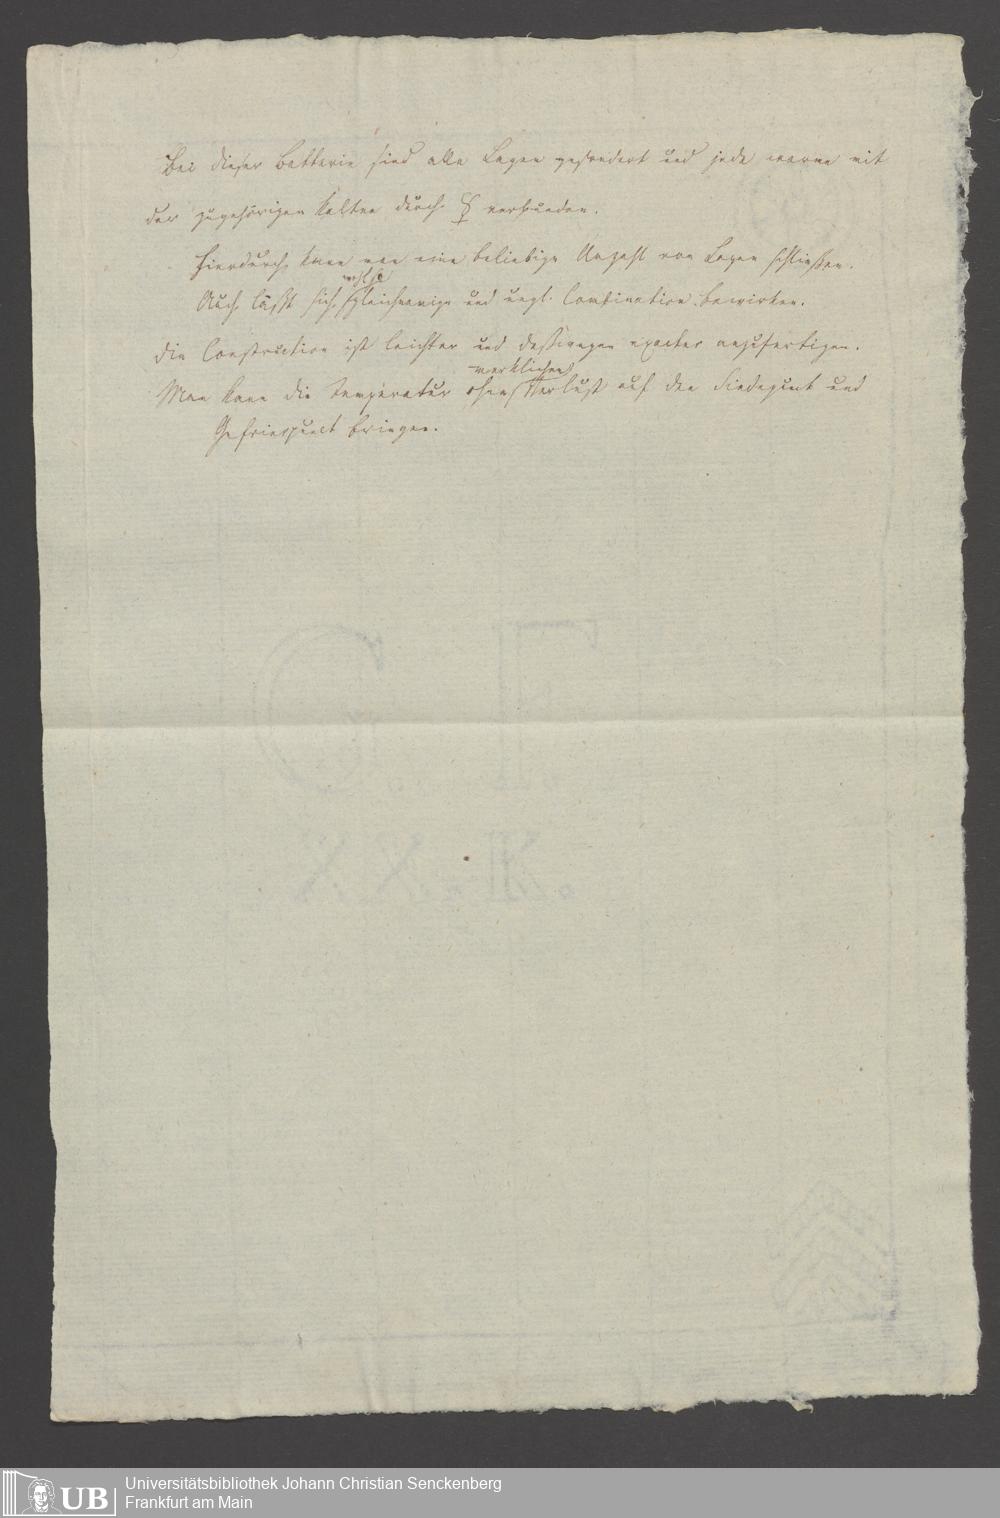 Bei dieser Batterie sind alle Lagen gesondert und jede warme mit
der zugehörigen kalten durch ☿ verbunden.
Hierdurch kann man eine beliebige Anzahl von Lagen schließen.
Auch läßt sich gleichnamige und ungl. Combination bewirken.
die Construction ist leichter und deßwegen exacter anzufertigen.
merklichen
Man kann die Temperatur ohne Verlust auf den Siedepunct und
Gefrierpunct bringen.
Universitätsbibliothek Johann Christian Senckenberg
Frankfurt am Main
UB